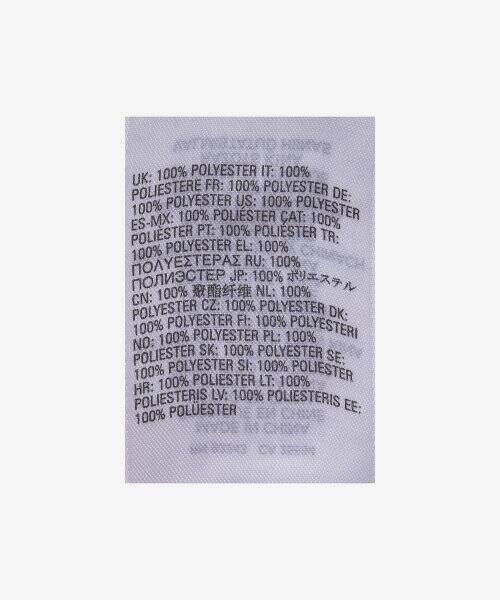 UK: 100% POLYESTER IT: 100%
POLIESTERE FR: 100% POLYESTER DE:
100% POLYESTER US: 100% POLYESTER
ES-MX: 100% POLIÉSTER CAT: 100%
POLIÈSTER PT: 100% POLIÉSTER TR:
100% POLYESTER EL: 100%
ΠΟΛΥΕΣΤΕΡΑΣ RU: 100%
ПОЛИЭСТЕР JP: 100% ポリエステル
CN: 100% 聚酯纤维 NL: 100%
POLYESTER CZ: 100% POLYESTER DK:
100% POLYESTER FI: 100% POLYESTERI
NO: 100% POLYESTER PL: 100%
POLIESTER SK: 100% POLYESTER SE:
100% POLYESTER SI: 100% POLIESTER
HR: 100% POLIESTER LT: 100%
POLIESTERIS LV: 100% POLIESTERIS EE:
100% POLÜESTER